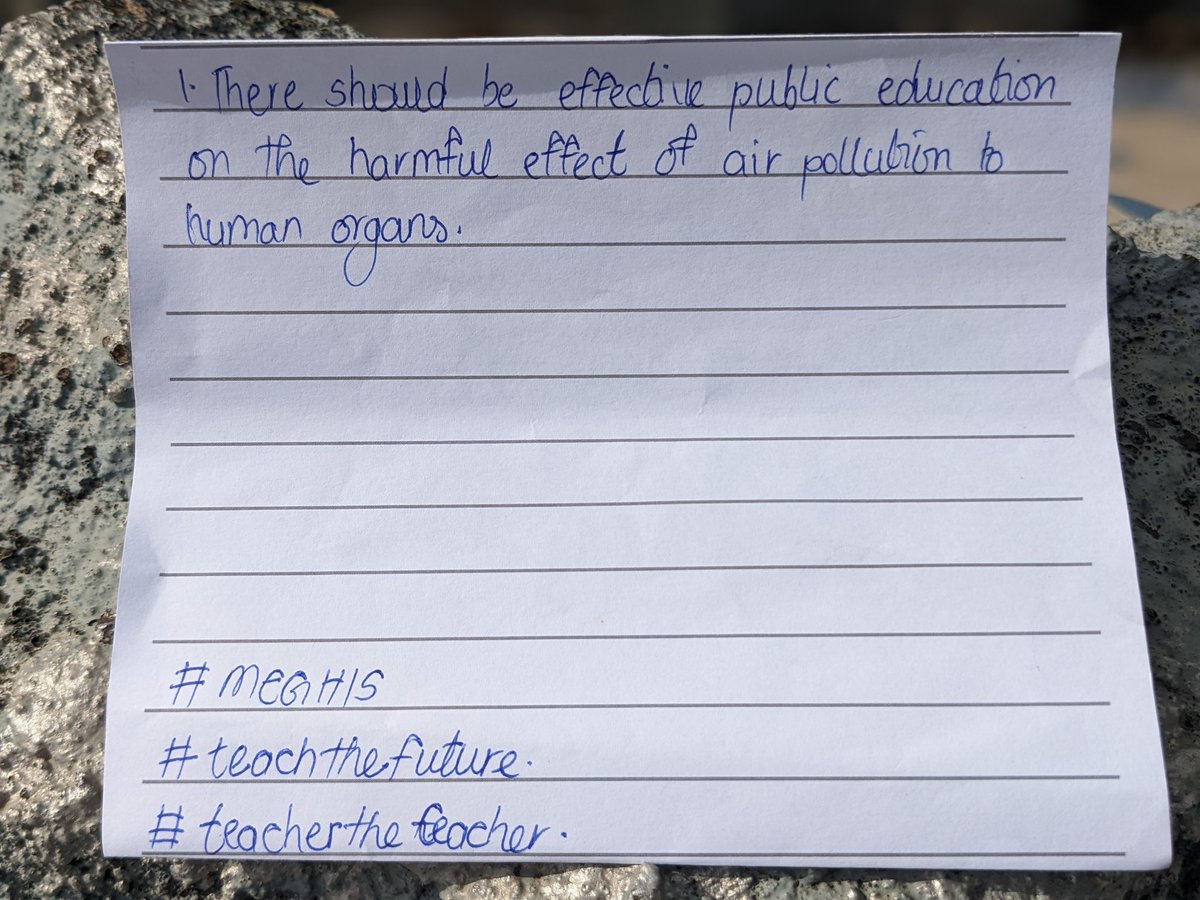 1. There should be effective public education
on the harmful effect of air pollution to
human organs.
# MEGHIS
# teachthefuture.
# teacherthe teacher.